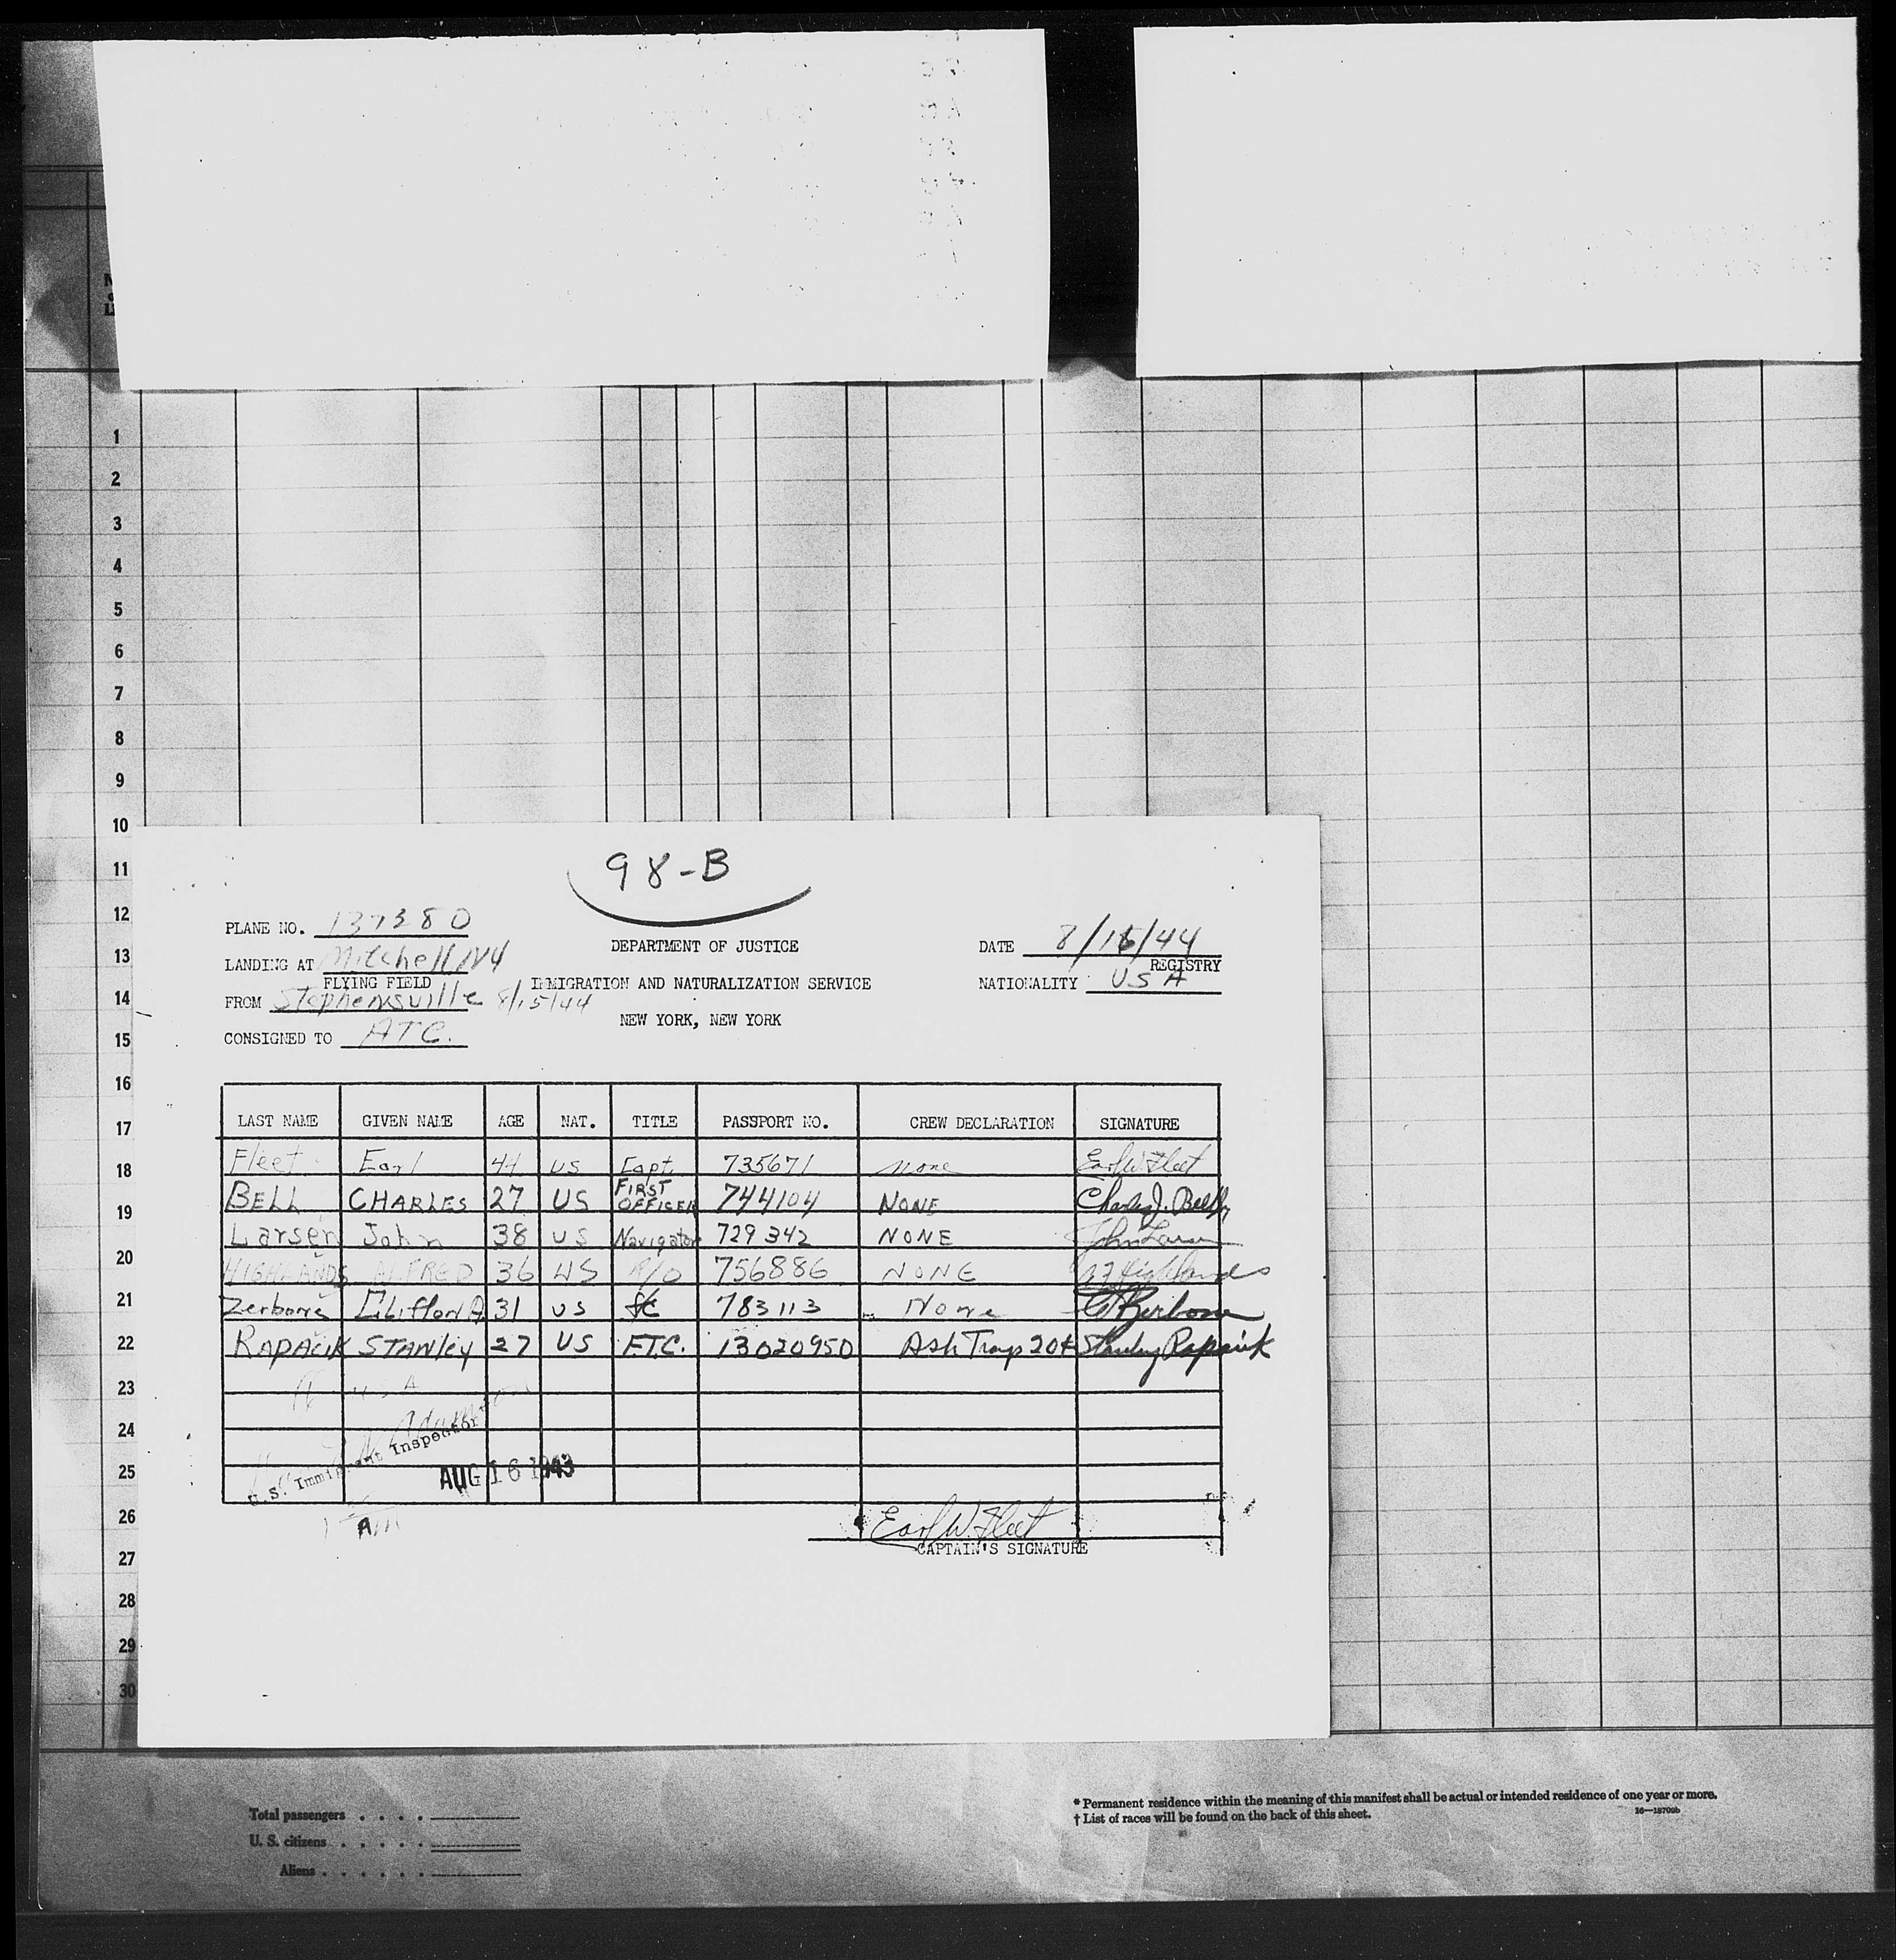 1
2
3
4
5
6
7
8
9
10
11
12
13
14
15
16
17
18
19
20
21
22
23
24
25
26
27
28
29
30
98-B
PLANE NO. 137380
LANDING AT Mitchell NY
FLYING FIELD
FROM Stephensville 8/15/44
CONSIGNED TO ATC.
DEPARTMENT OF JUSTICE
IMMIGRATION AND NATURALIZATION SERVICE
NEW YORK, NEW YORK
DATE 8/16/44
REGISTRY
NATIONALITY USA
LAST NAME GIVEN NAME AGE NAT. TITLE PASSPORT NO. CREW DECLARATION SIGNATURE
Fleet Earl 44 US Capt. 735671 none Earl W. Fleet
BELL CHARLES 27 US FIRST OFFICER 744104 NONE Charles J. Bell Jr
Larsen John 38 US Navigator 729342 NONE John Larsen
HIGHLANDS ALFRED 36 US R/O 756886 NONE Highlands
Zerbone A. 31 US 783113 None Zerbone
RAPACIK STANLEY 27 US F.T.C. 13020950 Ash Trays 20¢ Stanley Rapacik
USA
U.S. Immigrant Inspector
AUG 16 1943
AM
Earl W. Fleet
CAPTAIN'S SIGNATURE
Total passengers . . . .
U. S. citizens . . . . .
Aliens . . . . . .
* Permanent residence within the meaning of this manifest shall be actual or intended residence of one year or more.
† List of races will be found on the back of this sheet.